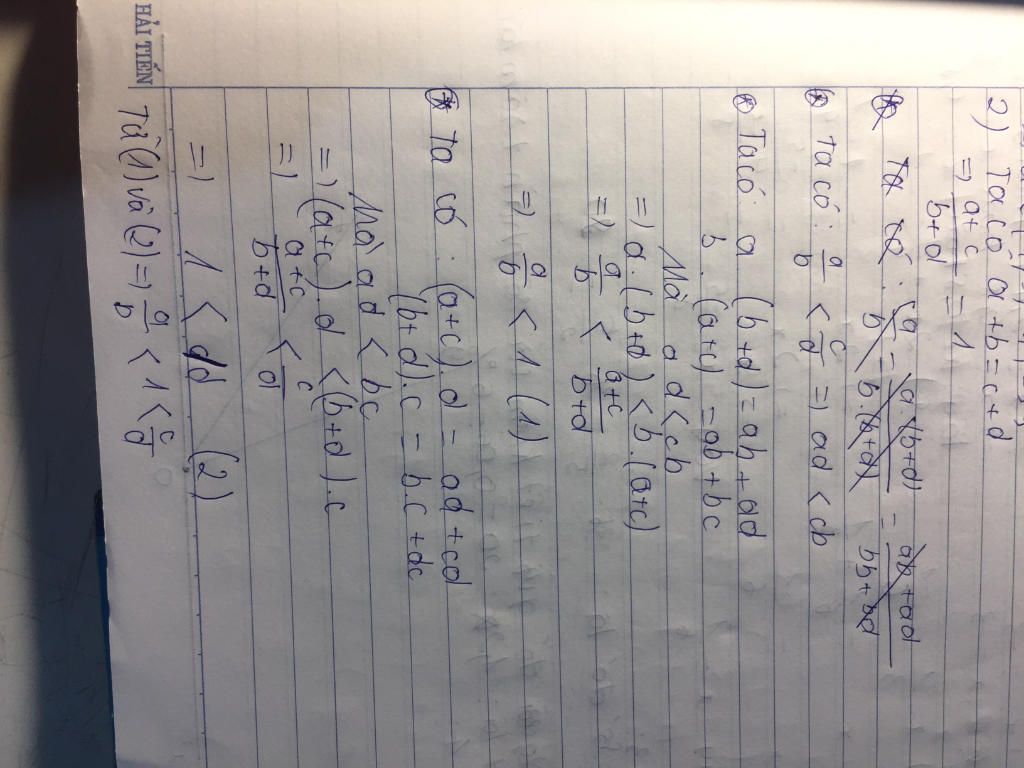 2) Ta có a + b = c + d
=) a+c/b+d = 1
Ta có : a/b = a.(b+d)/b.(b+d) = ab+ad/bb+bd
* Ta có : a/b < c/d =) ad < cb
* Ta có : a (b+d) = ab + ad
b . (a+c) = ab + bc
Mà ad < cb
=) a.(b+d) < b.(a+c)
=) a/b < a+c/b+d
=) a/b < 1 (1)
* Ta có : (a+c).d = ad + cd
(b+d).c = bc + dc
Mà ad < bc
=) (a+c).d < (b+d).c
=) a+c/b+d < c/d
=) 1 < (2)
Từ (1) và (2) =) a/b < 1 < c/d
HẢI TIẾN